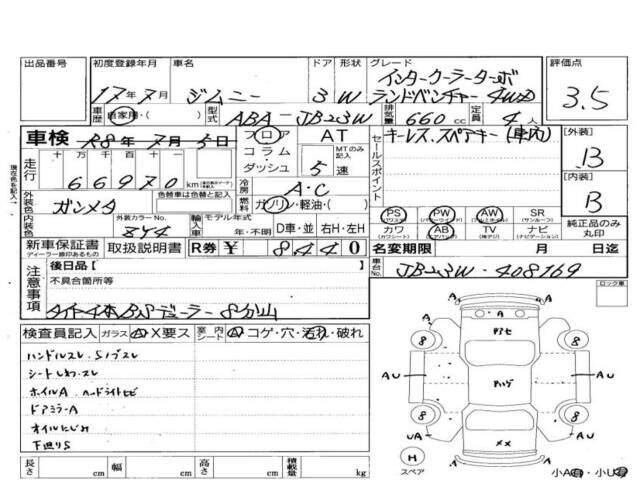 出品番号 初度登録年月 車名 ドア 形状 グレード 評価点
17年7月 ジムニー 3W インタークーラーターボ
ランドベンチャー 4WD 3.5
車歴 自家用・( ) 型式 ABA-JB23W 排気量 660cc 定員 4人
車検 R8年7月5日 フロア AT
コラム・ダッシュ MTのみ記入 5速
走行 十万 万 千 百 十 66970km
現在色を記入
セールスポイント キーレス.スペアキー(車内)
【外装】 B
【内装】 B
冷房 A・C
外装色 ガンメタ 色替車は色替と記入 燃料 ガソリン・軽油・( )
内装色 外装カラーNo. 844 輸入車 モデル年式 年・不明 D車・並 右H・左H
PS PW AW SR (サンルーフ)
カワ AB TV ナビ
(カワシート) (エアバッグ) (ナビゲーション)
純正品のみ丸印
新車保証書 取扱説明書 R券 ¥ 8440
ディーラー捺印あるもの
名変期限 月 日迄
車台No. JB23W-408769
注意事項 後日品【 】
不具合箇所等
タイヤ4本BSデューラー8分山
ロック車
検査員記入 ガラス A・X要ス 室内シート A・コゲ・穴・汚れ・破れ
ハンドルスレ.Sノブスレ
シートしわ.スレ
ホイルA ヘッドライトヒビ
ドアミラーA
オイルにじみ
下廻りS
A A
8 8
AU AU
8 8
UA AU
H
スペア
小A・小U
長さ cm 幅 cm 高さ cm 積載量 kg